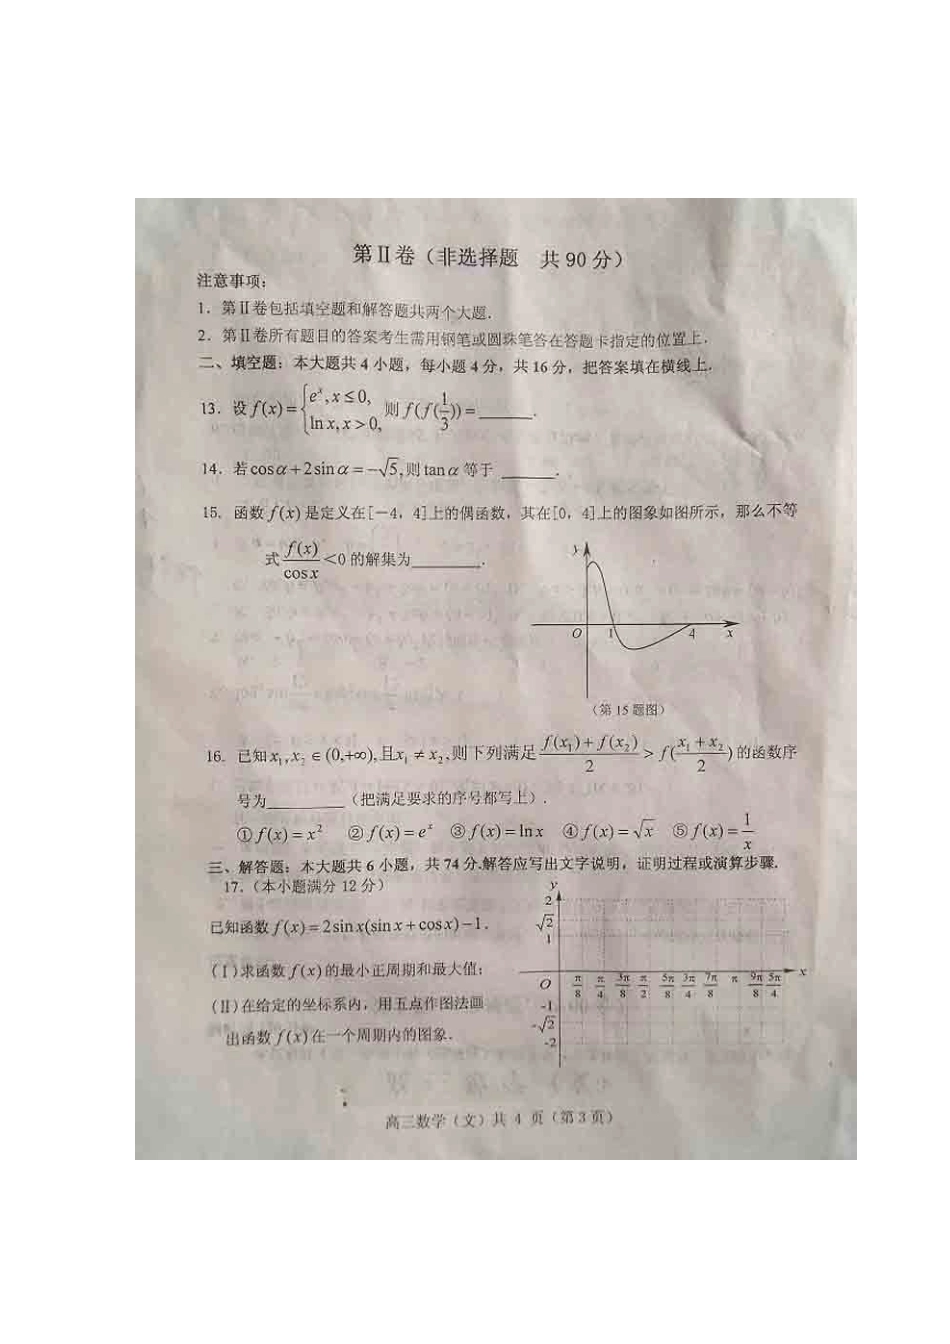 第Ⅱ卷（非选择题　共90分）
注意事项：
1．第Ⅱ卷包括填空题和解答题共两个大题．
2．第Ⅱ卷所有题目的答案考生需用钢笔或圆珠笔答在答题卡指定的位置上．
二、填空题：本大题共4小题，每小题4分，共16分，把答案填在横线上．
13．设f(x)={e^x, x≤0, ln x, x>0, 则f(f(1/3))=______．
14．若cosα+2sinα=-√5,则tanα等于______．
15．函数f(x)是定义在[－4，4]上的偶函数，其在[0，4]上的图象如图所示，那么不等
式 f(x)/cos x <0的解集为______．
y
O 1 4 x
（第15题图）
16．已知x₁,x₂∈(0,+∞),且x₁≠x₂,则下列满足 (f(x₁)+f(x₂))/2 > f((x₁+x₂)/2)的函数序
号为______（把满足要求的序号都写上）．
①f(x)=x² ②f(x)=e^x ③f(x)=ln x ④f(x)=√x ⑤f(x)=1/x
三、解答题：本大题共6小题，共74分.解答应写出文字说明，证明过程或演算步骤．
17．（本小题满分12分）
已知函数f(x)=2sin x(sin x+cos x)-1．
(Ⅰ)求函数f(x)的最小正周期和最大值；
(Ⅱ)在给定的坐标系内，用五点作图法画
出函数f(x)在一个周期内的图象．
y
2
√2
1
O π/8 π/4 3π/8 π/2 5π/8 3π/4 7π/8 π 9π/8 5π/4 x
-1
-√2
-2
高三数学（文）共4页（第3页）